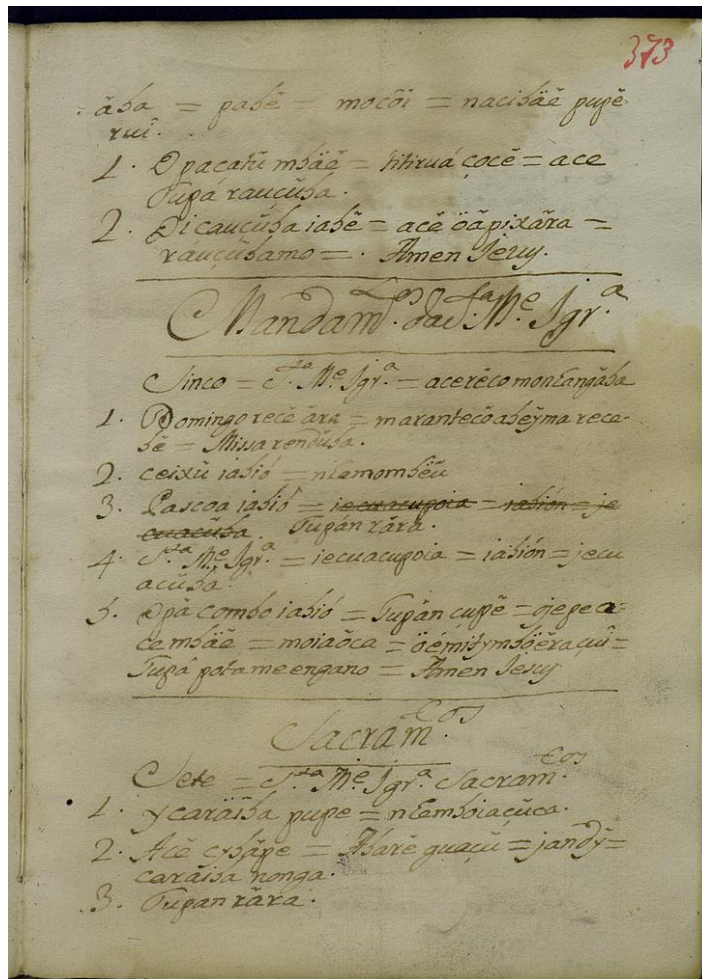 373
ãba = pabê = mocõi = nacibäê pupê
ruî.
1. Opacatũ mbäê = titiruá çocê = ace
Tupá rauçũba.
2. Oicauçũba iabê = acê öãpixãra =
rauçũbamo = . Amen Jesus.
Mandam.tos da S.ta M.e Igr.a
Sinco = S.ta M.e Igr.a = acerẽco montangãba
1. Domingo recê ãra = marantecõabeỹma rece-
bê = Missa rendũba.
2. Ceixũ iabió = ntẽmombẽu
3. Pascoa iabiõ = iecuacupoia = iabiõn = je
cuacũba. Tupãn rãra.
4. S.ta M.e Igr.a = iecuacupoia = iabión = jecu
acũba.
5. Opà combo iabió = Tupãn cupê = ojepe a=
ce mbäê = moiaõca = öémitymbỹẽraçuî =
Tupã potameengano = Amen Jesus
Sacram.tos
Sete = S.ta M.e Igr.a Sacram.tos
1. ycaräĩba pupe = ntẽmboiaçũca.
2. Acê cybãpe = Abarê guaçũ = jandỹ=
caräiba nonga.
3. Tupan rãra.